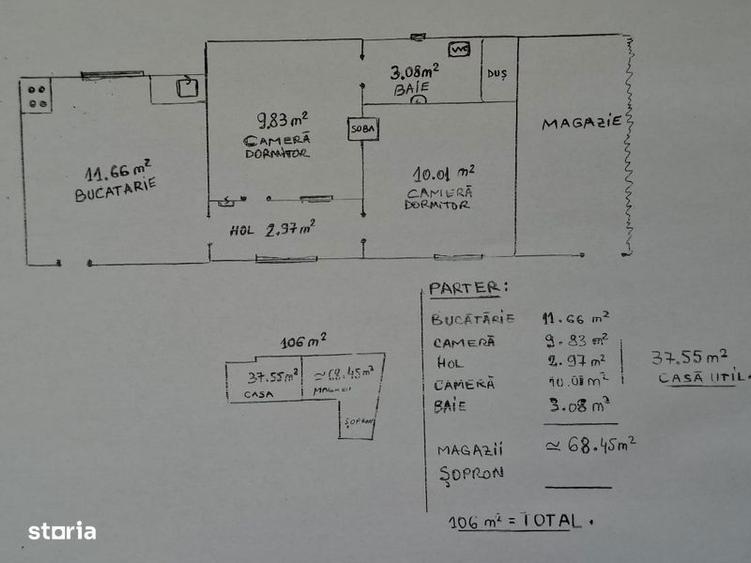 WC
3.08 m²
BAIE
DUȘ
9.83 m²
CAMERĂ
DORMITOR
SOBA
MAGAZIE
11.66 m²
BUCATARIE
10.01 m²
CAMERĂ
DORMITOR
HOL 2.97 m²
PARTER:
BUCĂTĂRIE 11.66 m²
CAMERĂ 9.83 m²
HOL 2.97 m²
CAMERĂ 10.01 m²
BAIE 3.08 m²
37.55 m²
CASĂ UTIL.
MAGAZII ≃ 68.45 m²
ȘOPRON
106 m² = TOTAL.
106 m²
37.55 m²
CASA
≃ 68.45 m²
MAGAZII
ȘOPRON
storia